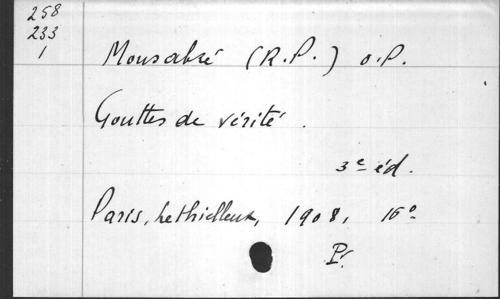 258
233
1
Monsabré (R.P.) o.p.
Gouttes de vérité.
3e éd.
Paris, Lethielleux, 1908, 16°
Pr.